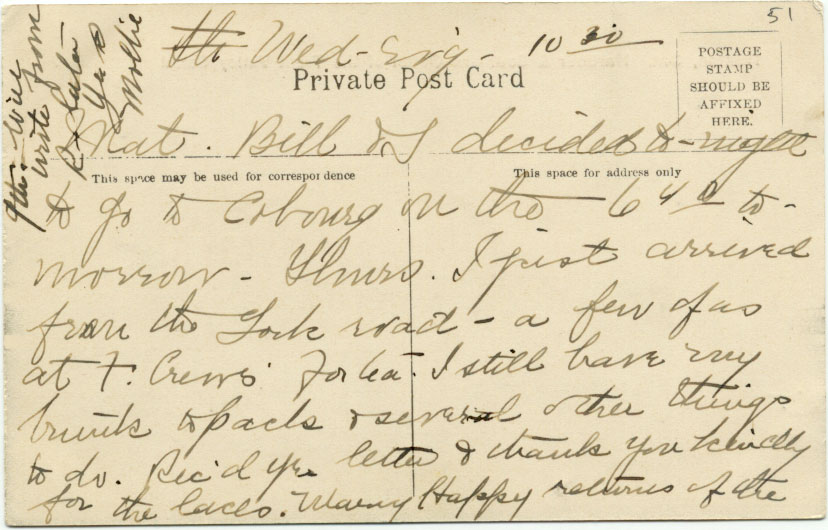 51
Wed - Ev'g - 10 30
Private Post Card
POSTAGE
STAMP
SHOULD BE
AFFIXED
HERE.
Nat. Bill & I decided to-night
This space may be used for correspondence
This space for address only
to go to Cobourg on the 6 40 to-
morrow - Thurs. I just arrived
from the Lock road - a few of us
at F. Crews' for tea. I still have my
trunk to pack & several other things
to do. Rec'd yr. letter & thank you kindly
for the laces. Many Happy returns of the
9th. Will
write from
later
Yrs
Mollie